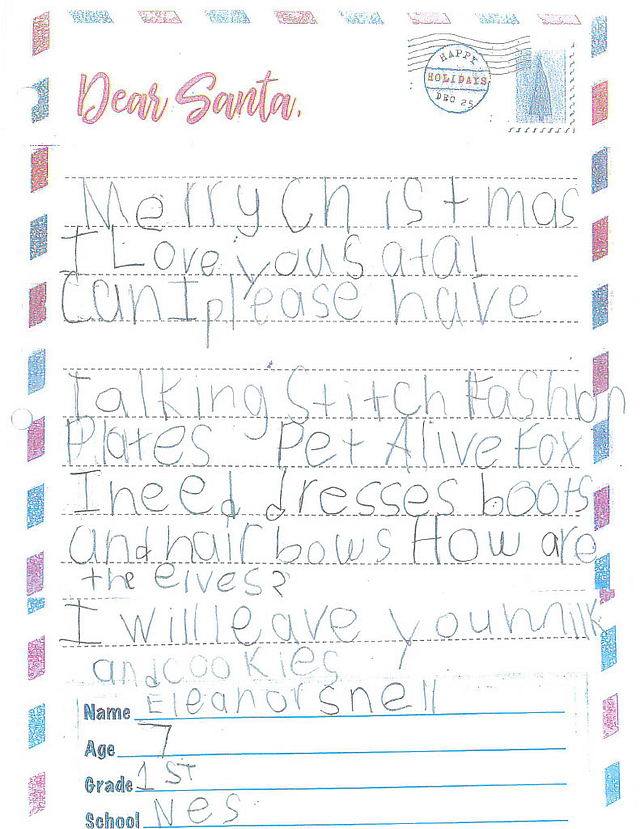 HAPPY
HOLIDAYS
DEC 25
Dear Santa,
Merry Ch istmas
I Love you S atal
Can I please have
Talking Stitch Fashion
Plates Pet Alive Fox
I need dresses boots
and hair bows How are
the elves?
I will leave you milk
and cookies
Name Eleanor Snell
Age 7
Grade 1 ST
School Nes